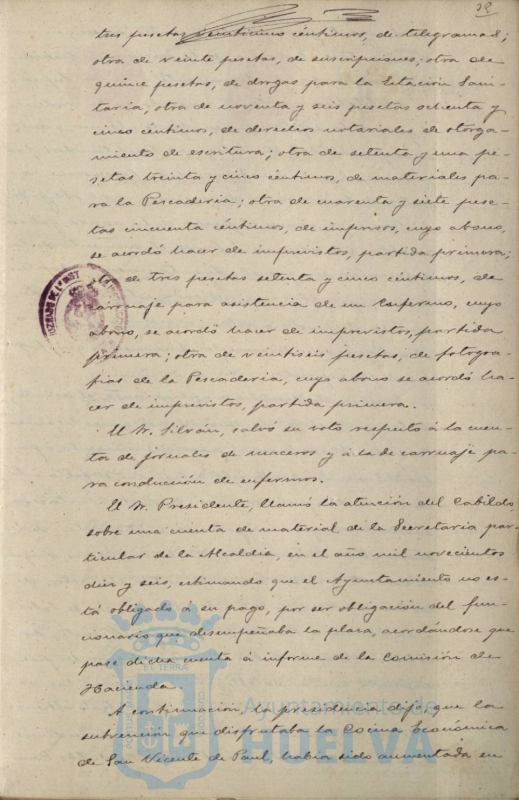 tres pesetas veinticinco céntimos, de telegramas;
otra de veinte pesetas, de suscripciones; otra de
quince pesetas, de drogas para la Estación Sani-
taria; otra de noventa y seis pesetas ochenta y
cinco céntimos, de derechos notariales de otorga-
miento de escritura; otra de setenta y una pe-
setas treinta y cinco céntimos, de materiales pa-
ra la Pescadería; otra de cuarenta y siete pese-
tas cincuenta céntimos, de impresos, cuyo abono,
se acordó hacer de imprevistos, partida primera;
de tres pesetas setenta y cinco céntimos, de
carruaje para asistencia de un enfermo, cuyo
abono, se acordó hacer de imprevistos, partida
primera; otra de veintiseis pesetas, de fotogra-
fias de la Pescadería, cuyo abono se acordó ha-
cer de imprevistos, partida primera.
El Sr. Silván, salvó su voto respecto á la cuen-
ta de jornales de maceros y á la de carruaje pa-
ra conducción de enfermos.
El Sr. Presidente, llamó la atención del Cabildo,
sobre una cuenta de material de la Secretaria par-
ticular de la Alcaldía, en el año mil novecientos
diez y seis, estimando que el Ayuntamiento no es-
tá obligado á su pago, por ser obligación del fun-
cionario que desempeñaba la plaza, acordándose que
pase dicha cuenta á informe de la Comisión de
Hacienda.
A continuación, la presidencia dijo, que la
subvencion que disfrutaba la Cocina Económica
de San Vicente de Paul, habia sido aumentada en
Ayuntamiento de
HUELVA